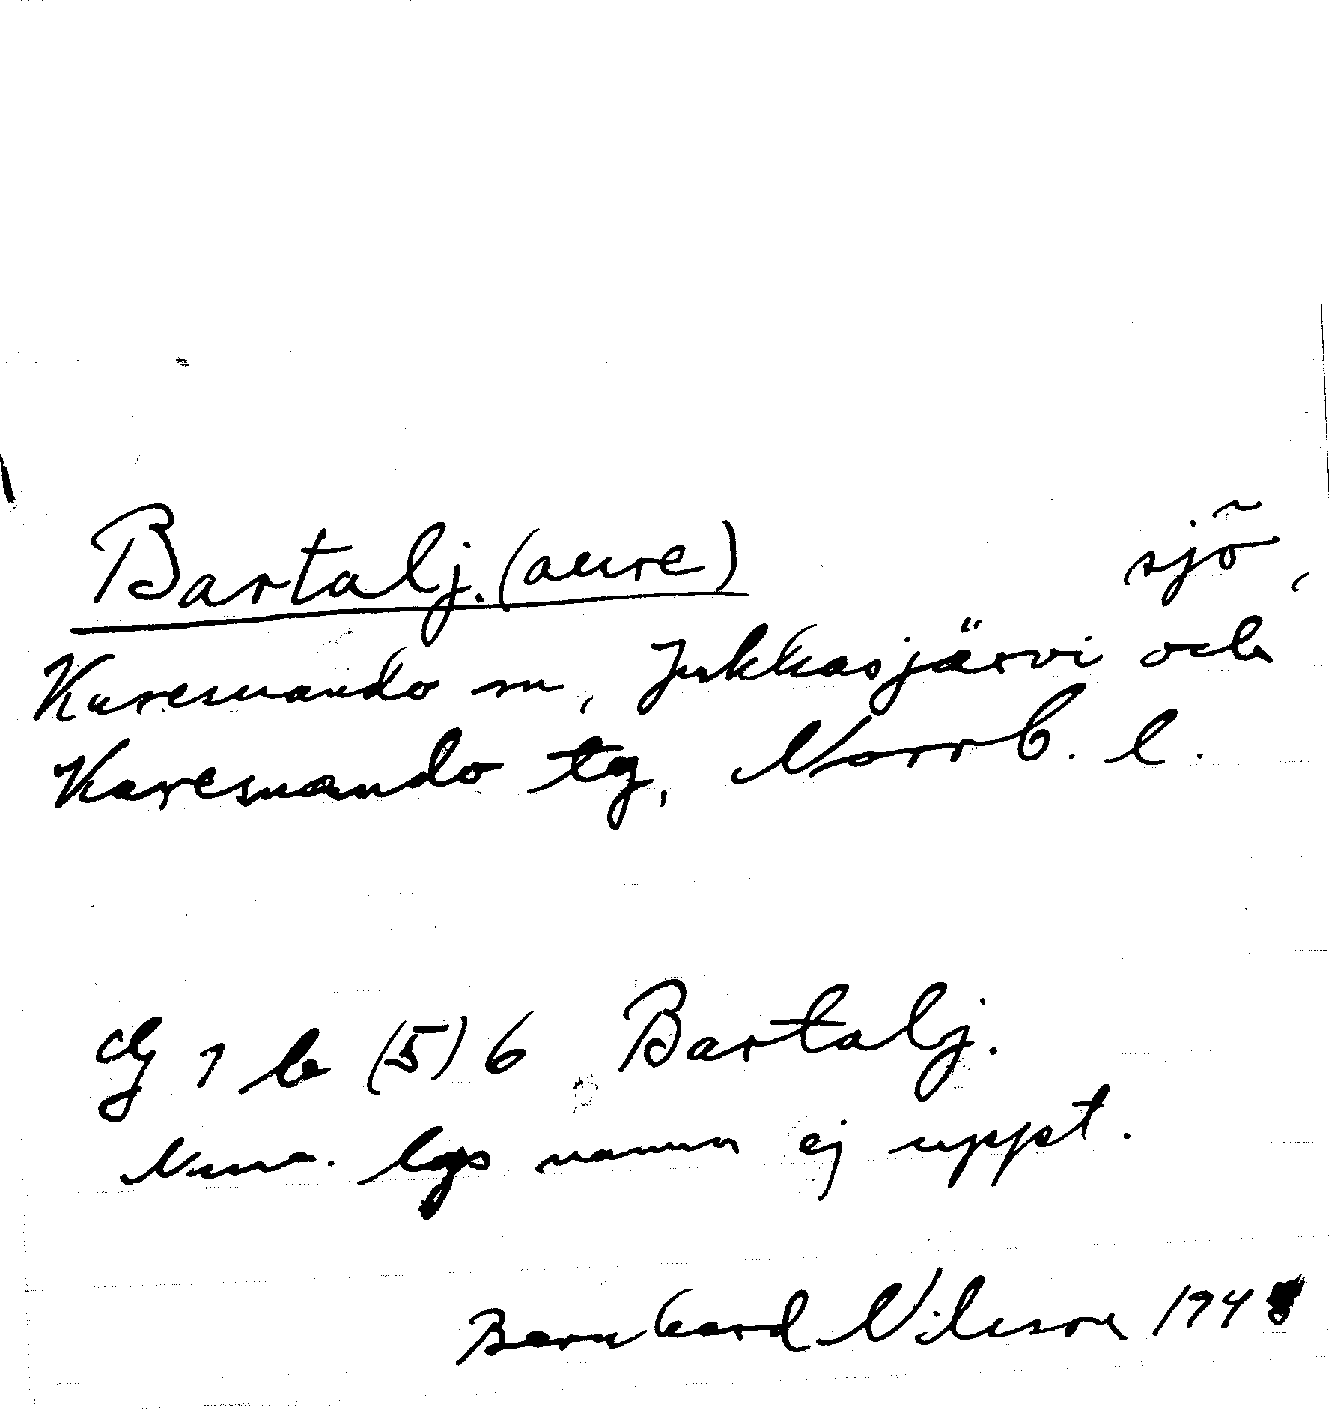 Bartalj. (aure) sjö,
Karesuando sn, Jukkasjärvi och
Karesuando tg, Norrb. l.
1 b (5) 6 Bartalj.
Nuv. lps namn ej uppt.
Bernhard Nilsson 194